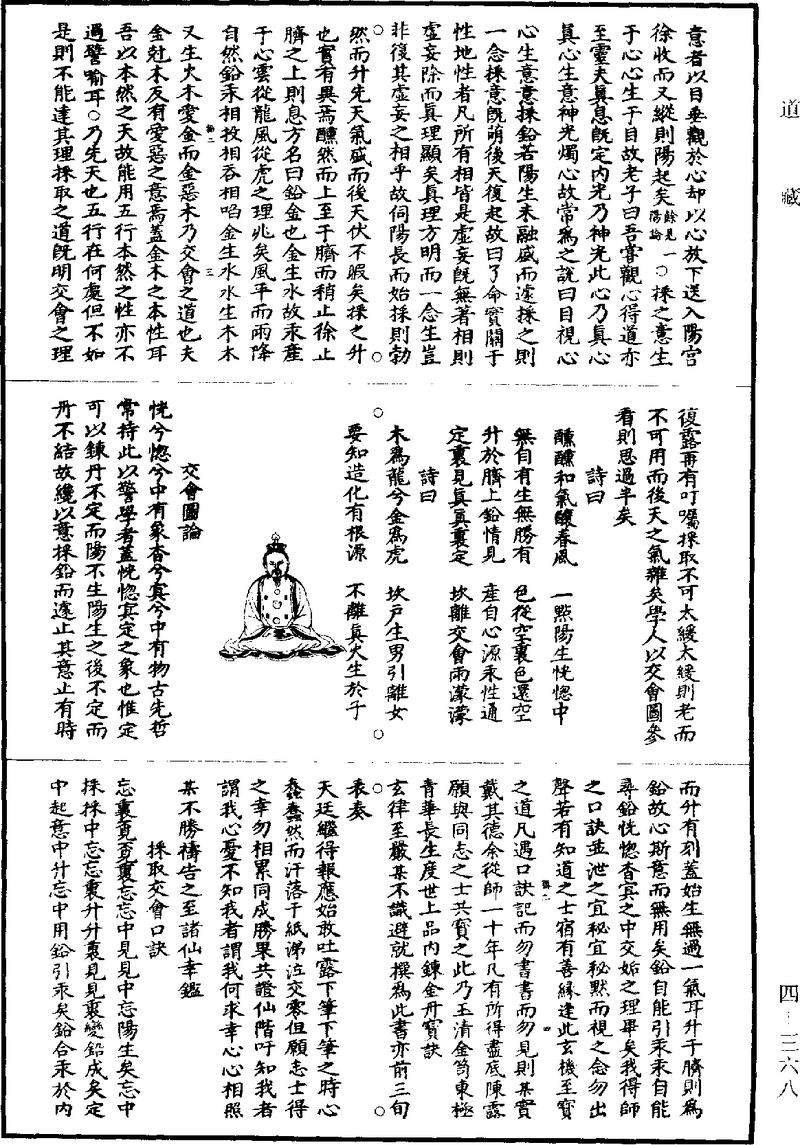 道藏
四—三六八
意者以目垂觀於心却以心放下送入陽宮
徐收而又縱則陽起矣餘見陽論一○採之意生
于心心生于目故老子曰吾嘗觀心得道亦
至靈夫真息既定內光乃神光此心乃真心
真心生意神光燭心故常為之說曰目視心
心生意意採鉛若陽生未融盛而遽採之則
一念採意既萌後天復起故曰了命實關于
性地性者凡所有相皆是虛妄既無著相則
虛妄除而真理顯矣真理方明而一念生豈
非復其虛妄之相乎故伺陽長而始採則勃
然而升先天氣盛而後天伏不暇矣採之升
也實有異焉醺然而上至于臍而稍止徐止
臍之上則息方名曰鉛金也金生水故汞產
于心雲從龍風從虎之理兆矣風平而雨降
自然鉛汞相投相吞相啗金生水水生木木
又生火木愛金而金惡木乃交會之道也夫
金尅木反有愛惡之意焉蓋金木之本性耳
吾以本然之天故能用五行本然之性亦不
過譬喻耳○乃先天也五行在何處但不如
是則不能達其理採取之道既明交會之理
復露再有叮囑採取不可太緩太緩則老而
不可用而後天之氣雜矣學人以交會圖參
看則思過半矣
詩曰
醺醺和氣釀春風　一點陽生恍惚中
無自有生無勝有　色從空裏色還空
升於臍上鉛情見　產自心源汞性通
定裏見真真裏定　坎離交會雨濛濛
詩曰
木為龍兮金為虎　坎戶生男引離女
要知造化有根源　不離真火生於子
交會圖論
恍兮惚兮中有象杳兮冥兮中有物古先哲
常持此以警學者蓋恍惚冥定之象也惟定
可以鍊丹不定而陽不生陽生之後不定而
丹不結故纔以意採鉛而遽止其意止有時
而升有刻蓋始生無過一氣耳升于臍則為
鉛故心斯意而無用矣鉛自能引汞汞自能
尋鉛恍惚杳冥之中交姤之理畢矣我得師
之口訣並泄之宜秘宜秘默而視之念勿出
聲若有知道之士宿有善緣逢此玄機至寶
之道凡遇口訣記而勿書書而勿見則某實
戴其德余從師一十年凡有所得盡底陳露
願與同志之士共寶之此乃玉清金笥東極
青華長生度世上品內鍊金丹寶訣
玄律至嚴某不識避就撰為此書亦前三旬
表奏
天廷繼得報應始敢吐露下筆下筆之時心
蠢蠢然而汗落于紙涕泣交零但願志士得
之幸勿相累同成勝果共證仙階吁知我者
謂我心憂不知我者謂我何求幸心心相照
某不勝禱告之至諸仙幸鑑
採取交會口訣
忘裏覓覓裏忘忘中見見中忘陽生矣忘中
採採中忘忘裏升升裏見見裏變鉛成矣定
中起意中升忘中用鉛引汞矣鉛合汞於內